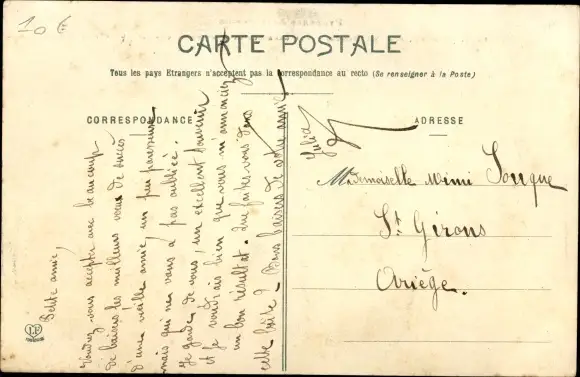 10 €
CARTE POSTALE
Tous les pays Etrangers n'acceptent pas la correspondance au recto (Se renseigner à la Poste)
CORRESPONDANCE
ADRESSE
Petite amie,
Voudrez vous accepter avec beaucoup
de baisers les meilleurs vœux de succès
d'une vieille amie, un peu paresseuse
mais qui ne vous a pas oubliée.
Je garde de vous, un excellent souvenir
et je voudrais bien que vous m'annonciez
un bon résultat. Que faites-vous dans
cette boîte? Bons baisers de votre amie
Julia
Mademoiselle Mimi Souque
St Girons
Ariège.